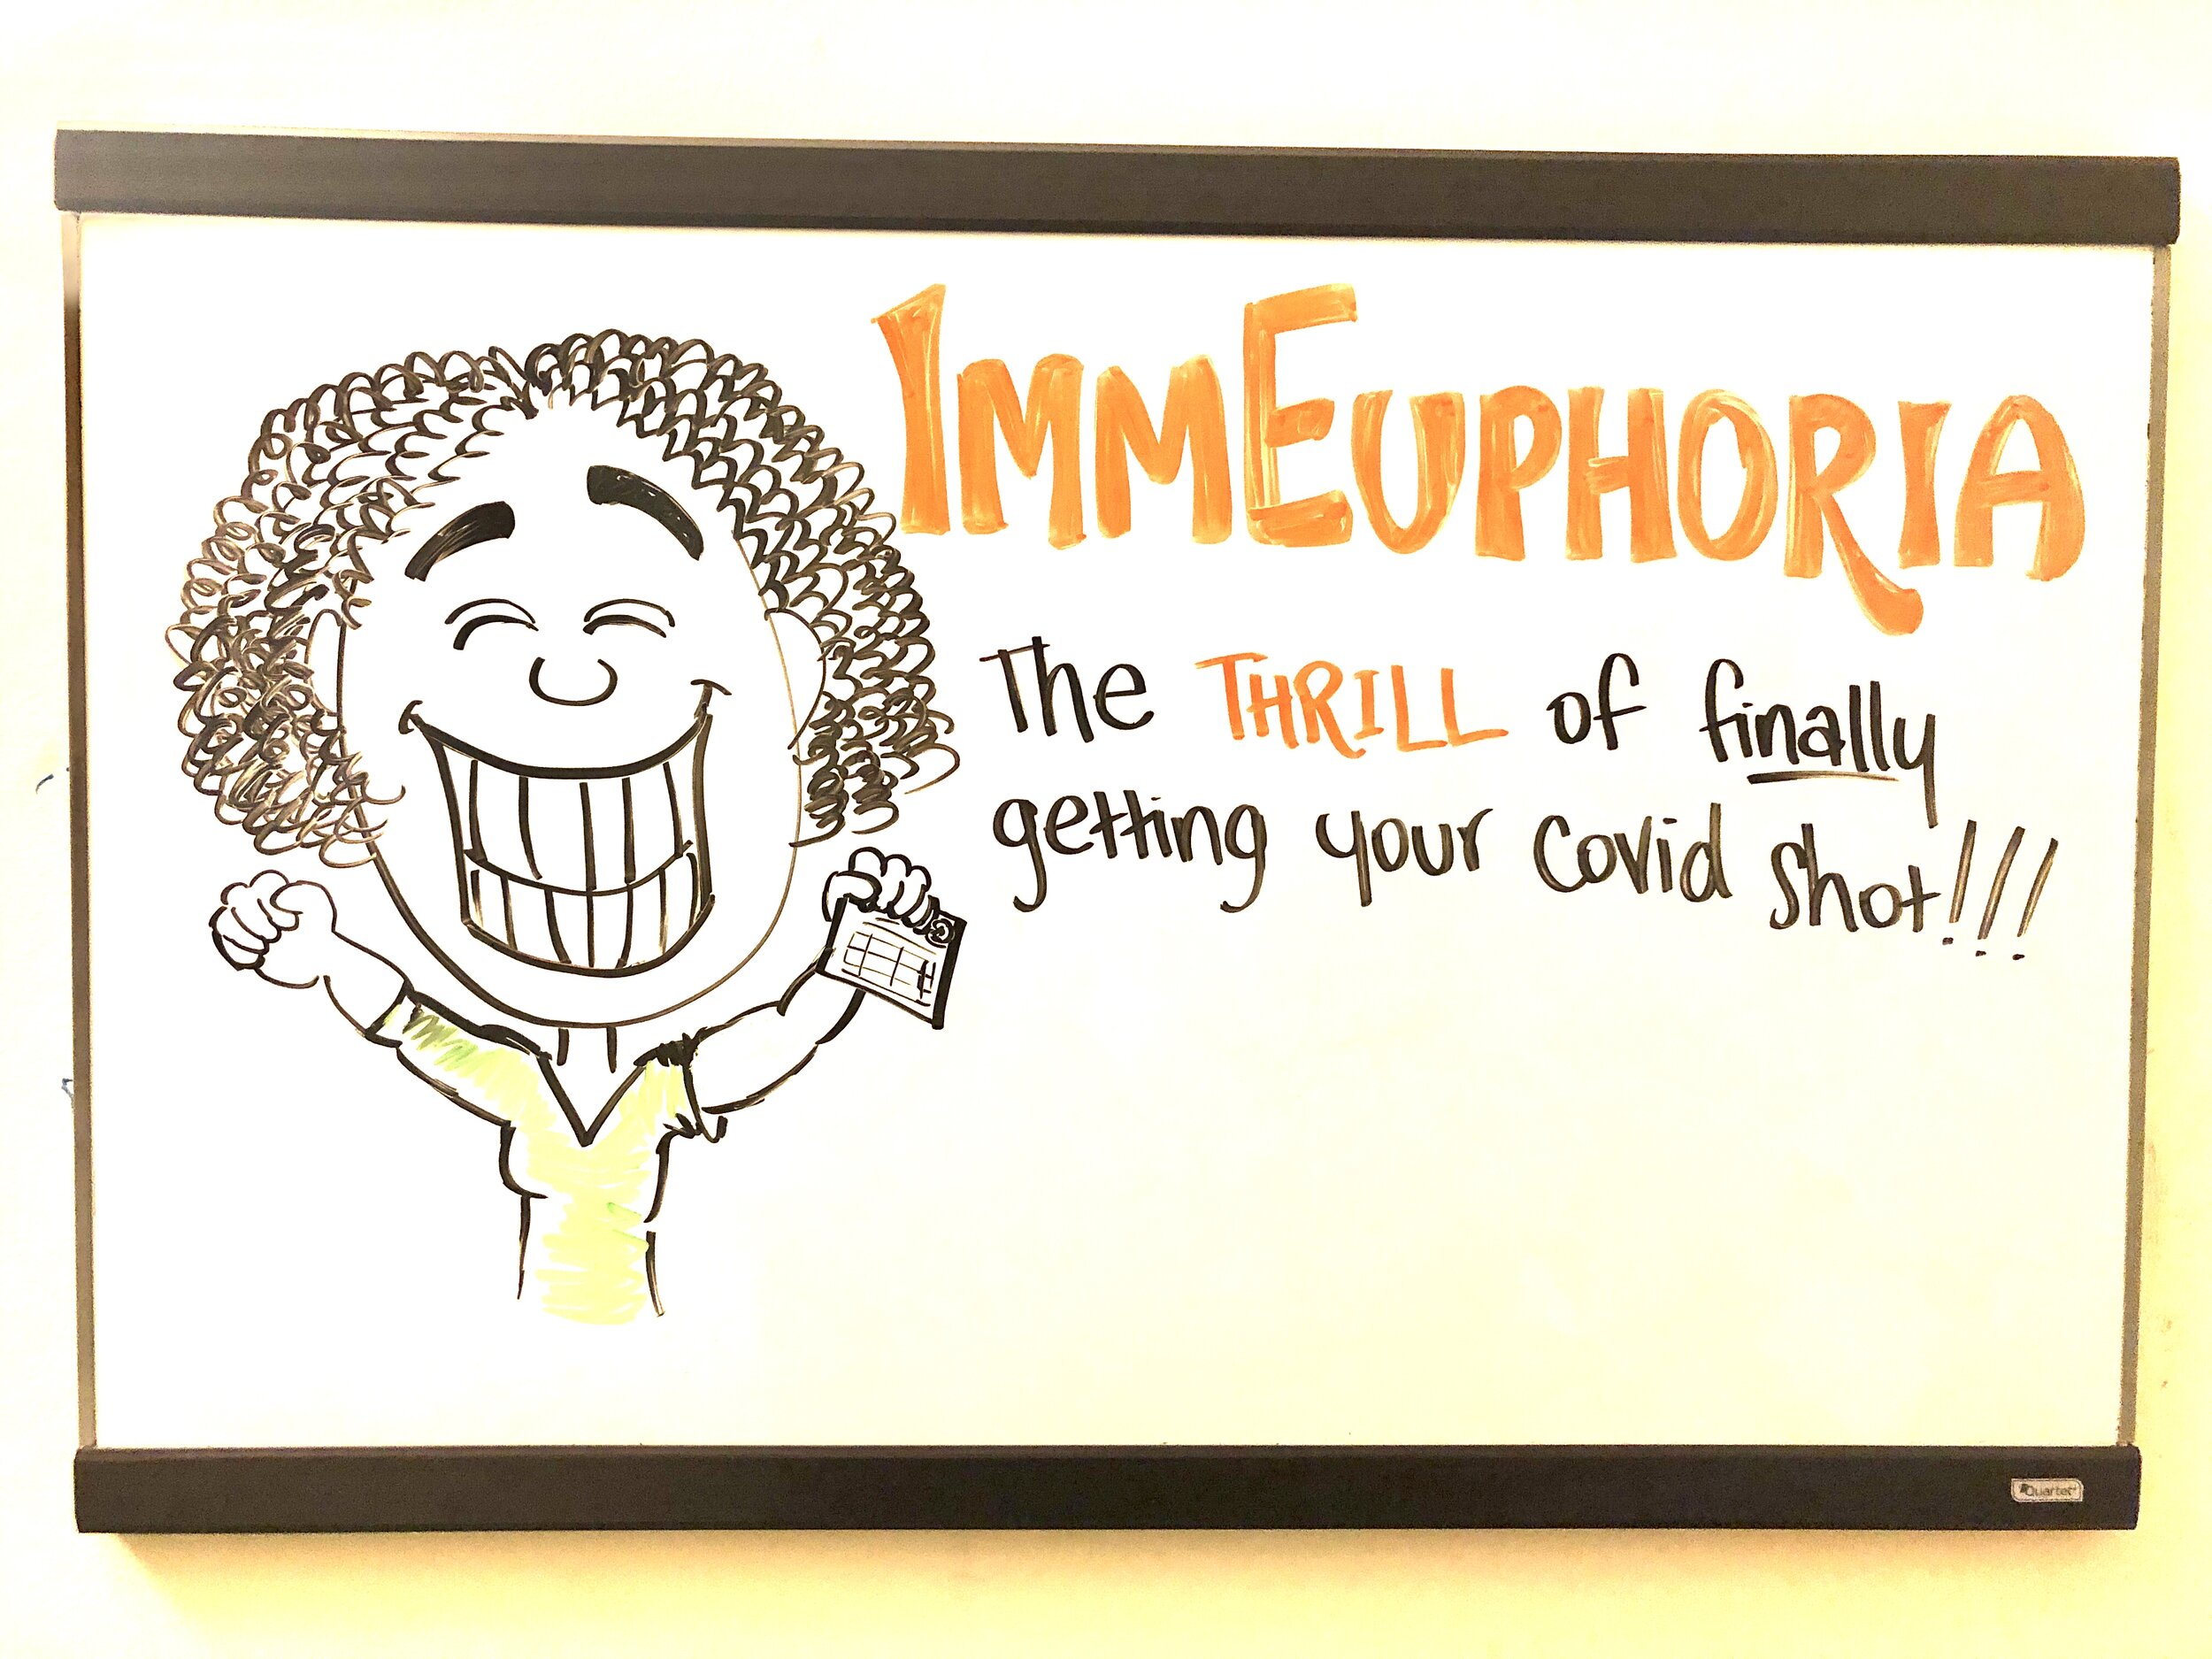 IMMEUPHORIA
The THRILL of finally
getting your Covid Shot!!!
Quartet